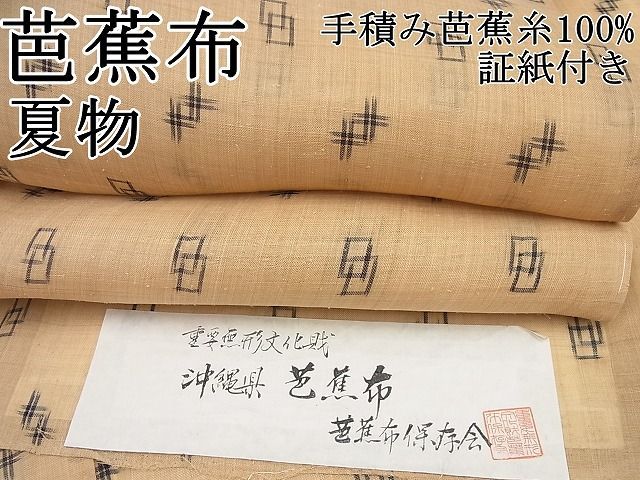 芭蕉布
夏物
手積み芭蕉糸100%
証紙付き
重要無形文化財
沖縄県 芭蕉布
芭蕉布保存会